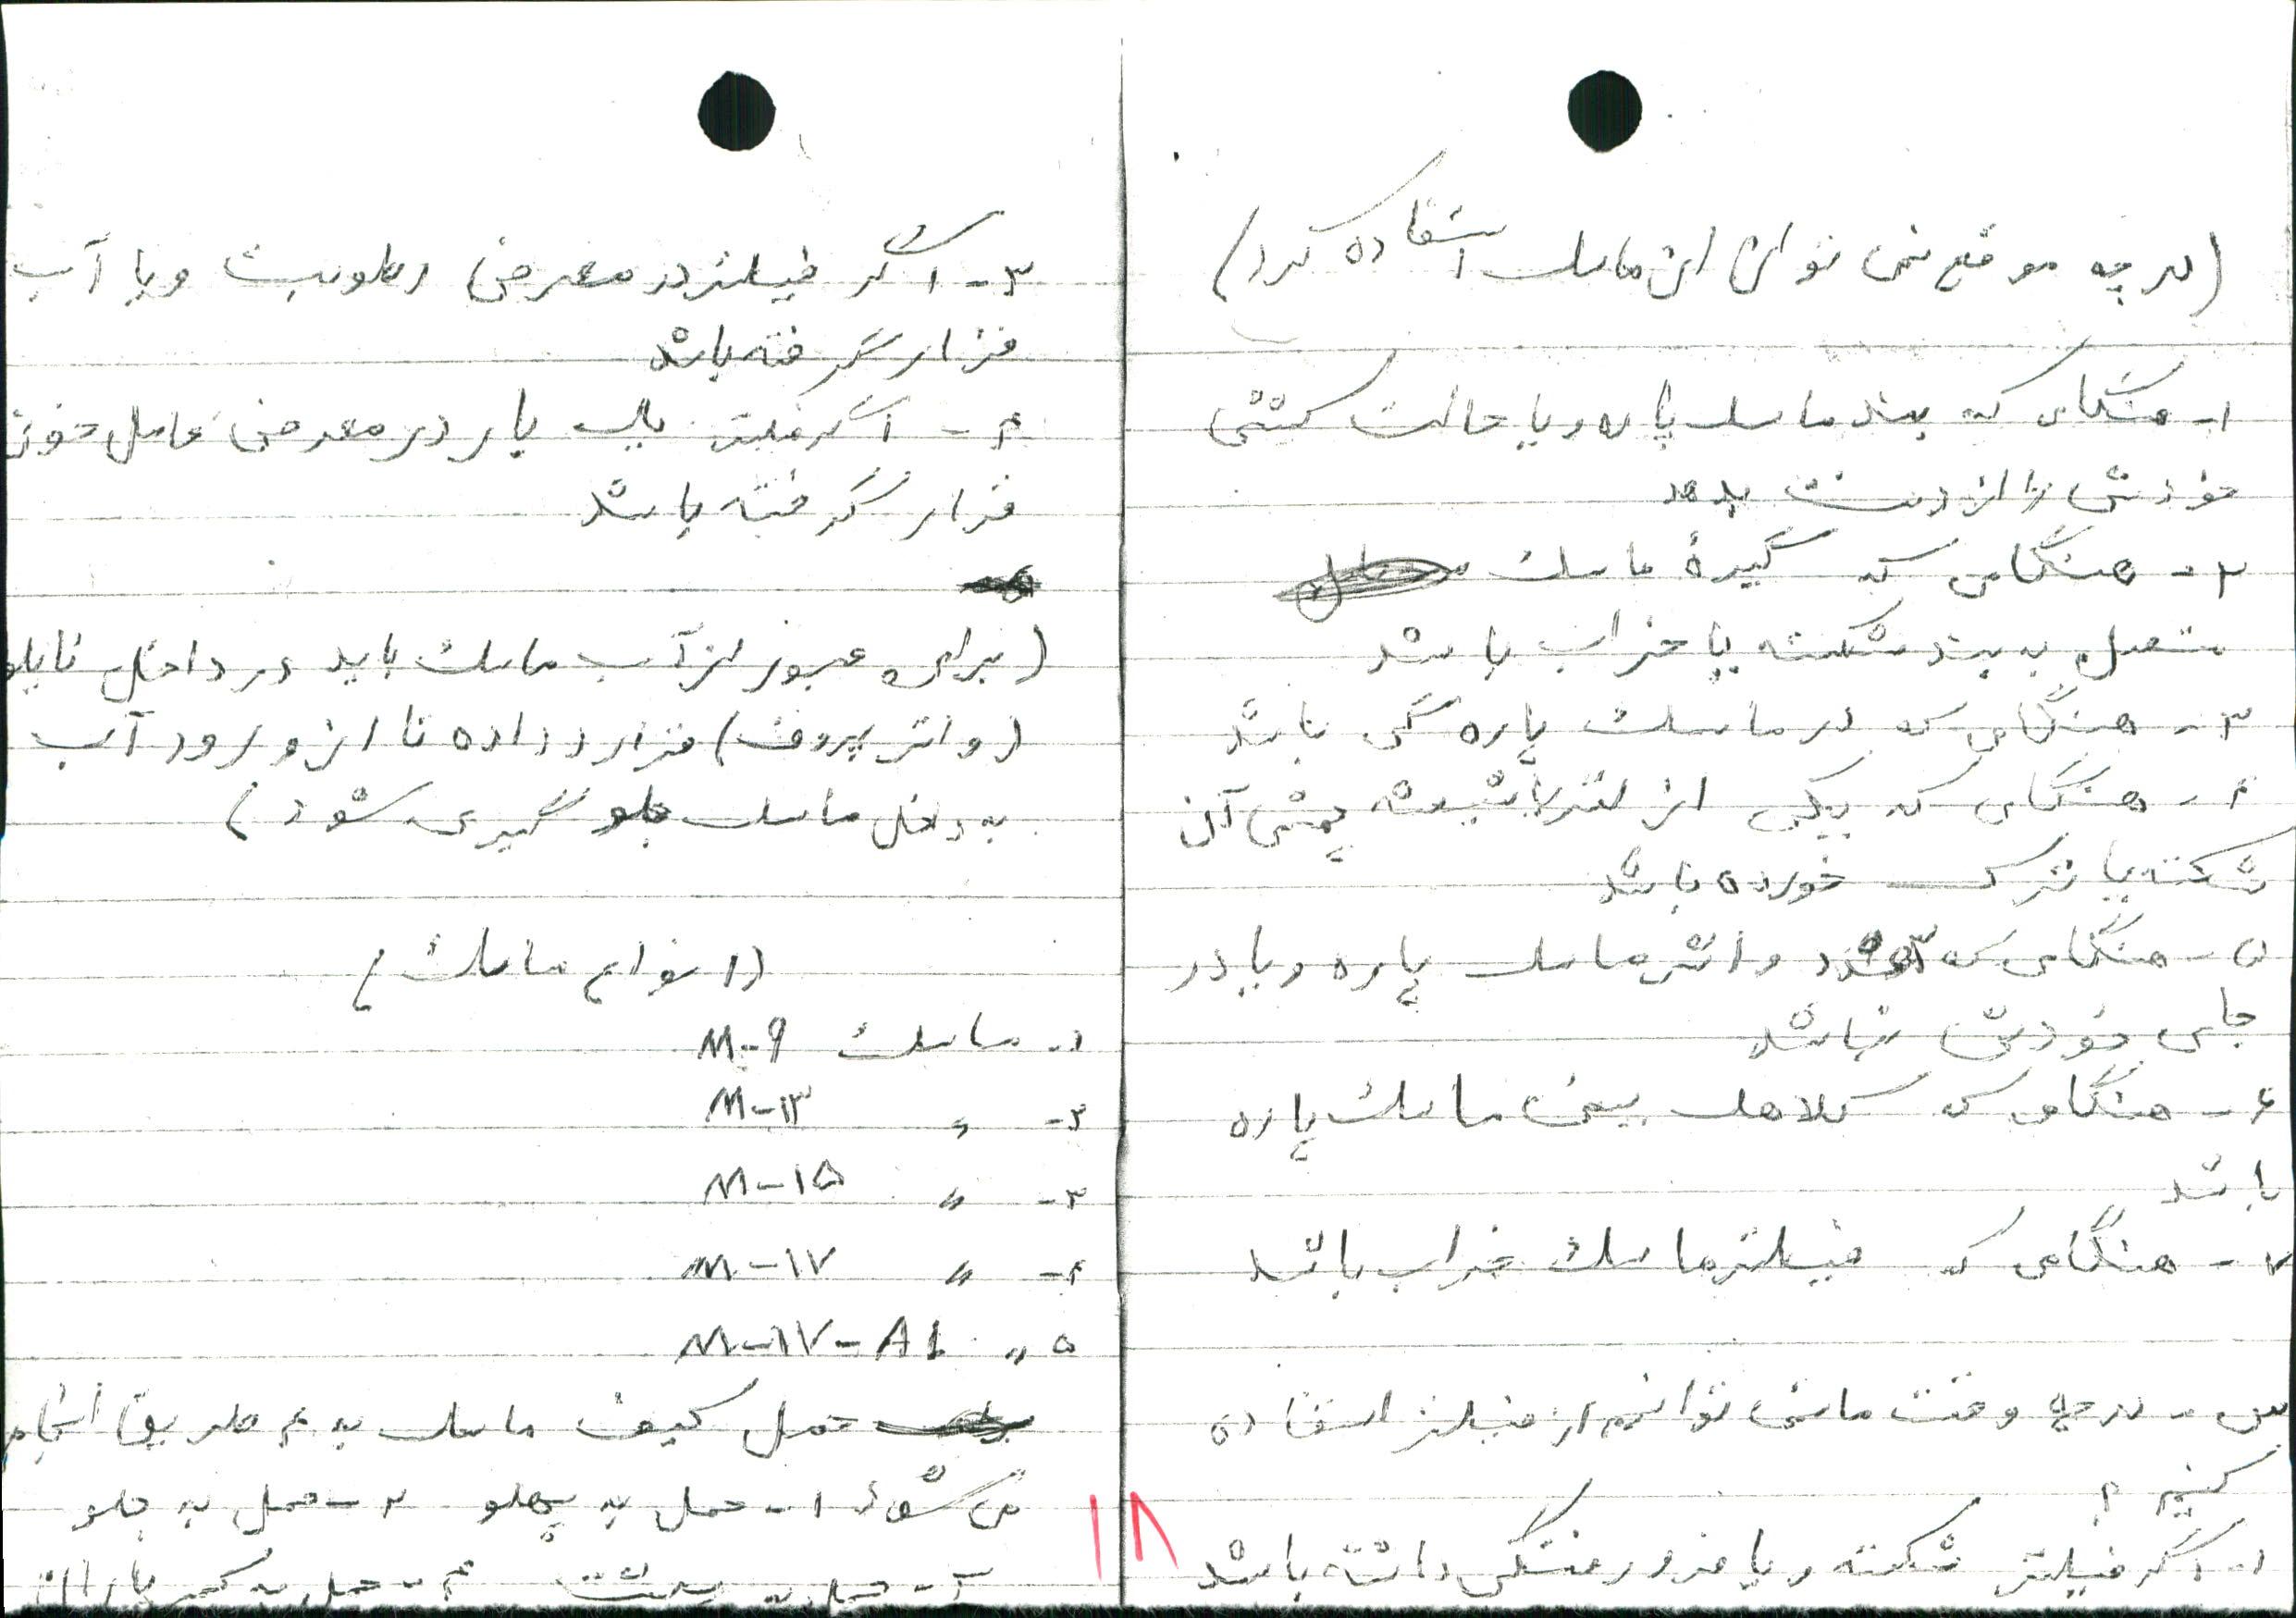 (در چه موقع نمی توان از ماسک استفاده کرد)
۱- هنگامی که بند ماسک پاره ویا حالت کشتی
خودش را از دست بدهد
۲- هنگامی که گیرهٔ ماسک
متصل به بند شکسته یا خراب باشد
۳- هنگامی که در ماسک پاره گی باشد
۴- هنگامی که یکی از لنزیا شیشه چشمی آن
شکسته یا ترک خورده باشد
۵- هنگامی که واشر ماسک پاره ویا در
جای خودش نباشد
۶- هنگامی که کلاهک بینی ماسک پاره
باشد
۷- هنگامی که فیلتر ماسک خراب باشد
س- در چه وقت ما نمی توانیم از فیلتر استفاده
کنیم ؟
۱- اگر فیلتر شکسته ویا فرو رفتگی داشته باشد
۳- اگر فیلتر در معرض رطوبت ویا آب
قرار گرفته باشد
۴- اگر فیلتر یک بار در معرض عامل خون
قرار گرفته باشد
(برای عبور از آب ماسک باید در داخل نایلو
(واتر پروف) قرار داده تا از ورود آب
به داخل ماسک جلو گیری شود)
(انواع ماسک)
۱- ماسک M-۹
۲- " M-۱۳
۳- " M-۱۵
۴- " M-۱۷
۵ " M-۱۷-A1
حمل کیف ماسک به ۴ طریق انجام
می شود ۱- حمل به پهلو ۲- حمل به جلو
۳- حمل به پشت ۴- حمل به کمر یا ران
۱۸